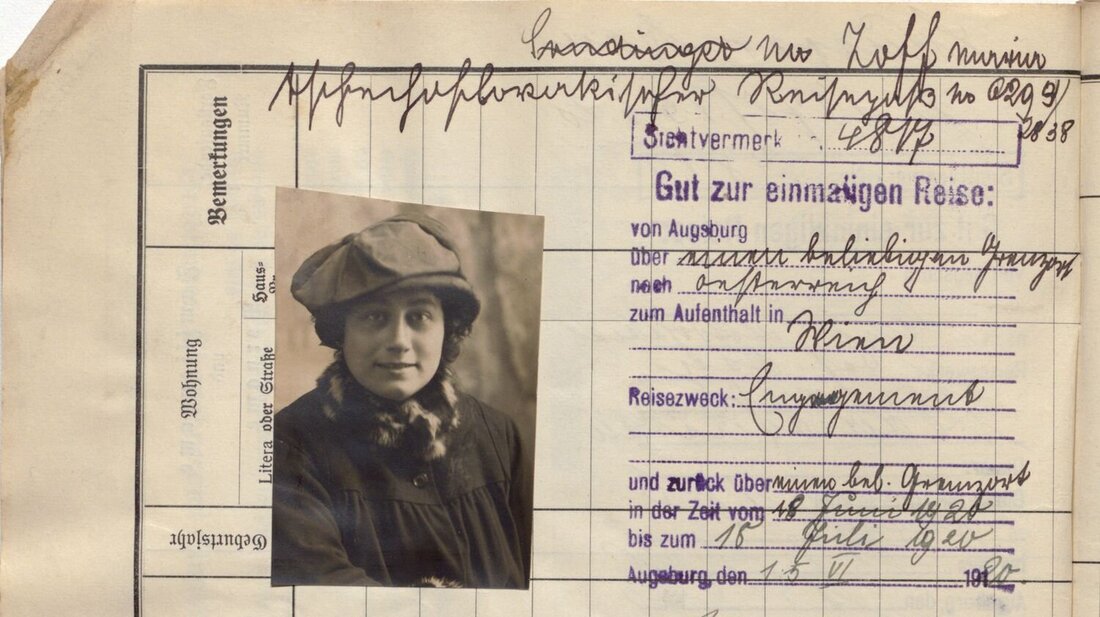 no Zoff Maria
Tschechoslovakischer Reisepaß no 6299/
2838
Bemerkungen
Sichtvermerk 4817
Gut zur einmaligen Reise:
von Augsburg
über einen beliebigen Grenzort
nach Oesterreich
zum Aufenthalt in
Wien
Haus-
Wohnung
Litera oder Straße
Reisezweck: Engagement
und zurück über einen bel. Grenzort
in der Zeit vom 18 Juni 1920
bis zum 15 Juli 1920
Geburtsjahr
Augsburg, den 15 VI 1920.